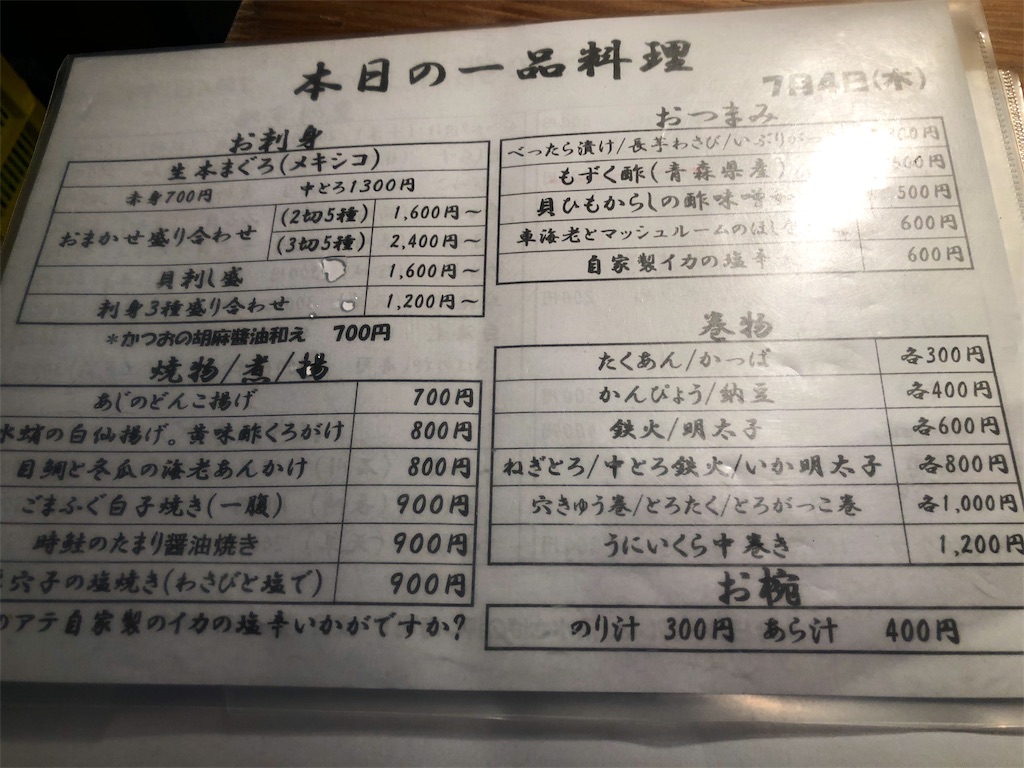 本日の一品料理
7月4日(木)
お刺身
生本まぐろ(メキシコ)
赤身700円 中とろ1300円
おまかせ盛り合わせ (2切5種) 1,600円～
(3切5種) 2,400円～
貝刺し盛 1,600円～
刺身3種盛り合わせ 1,200円～
*かつおの胡麻醤油和え 700円
焼物/煮/揚
あじのどんこ揚げ 700円
水蛸の白仙揚げ。黄味酢くろがけ 800円
目鯛と冬瓜の海老あんかけ 800円
ごまふぐ白子焼き(一腹) 900円
時鮭のたまり醤油焼き 900円
穴子の塩焼き(わさびと塩で) 900円
アテ自家製のイカの塩辛いかがですか?
おつまみ
べったら漬け/長芋わさび/いぶりが 00円
もずく酢(青森県産) 500円
貝ひもからしの酢味噌 500円
車海老とマッシュルームのほし 600円
自家製イカの塩辛 600円
巻物
たくあん/かっぱ 各300円
かんぴょう/納豆 各400円
鉄火/明太子 各600円
ねぎとろ/中とろ鉄火/いか明太子 各800円
穴きゅう巻/とろたく/とろがっこ巻 各1,000円
うにいくら中巻き 1,200円
お椀
のり汁 300円 あら汁 400円